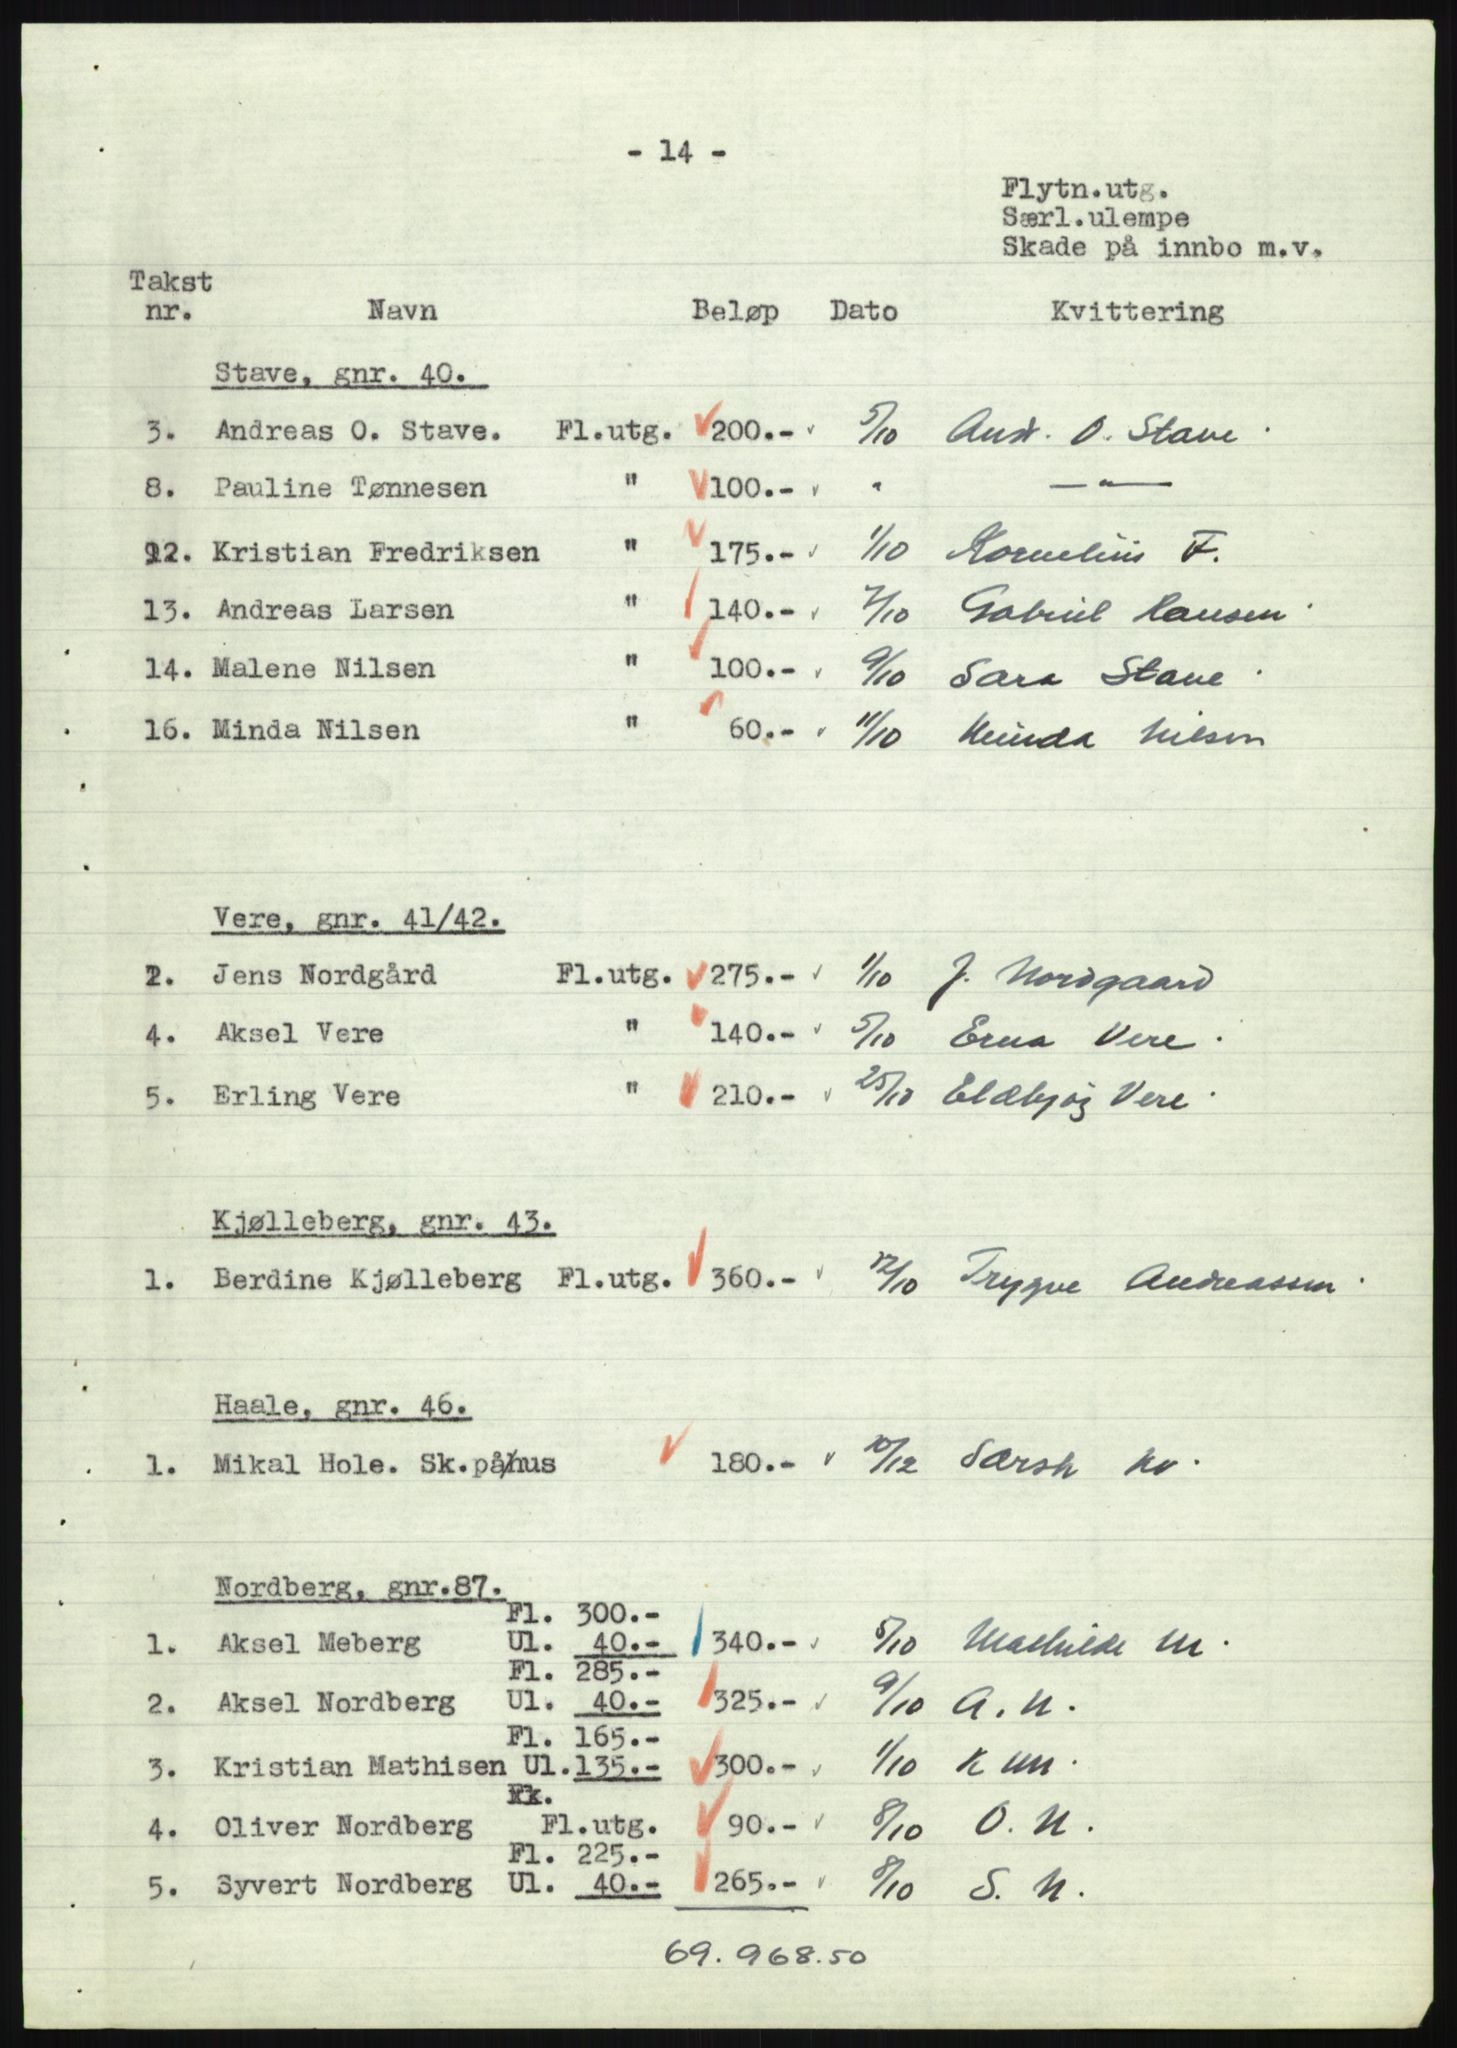 - 14 -
Flytn.utg.
Særl.ulempe
Skade på innbo m.v.
Takst
nr. Navn Beløp Dato Kvittering
Stave, gnr. 40.
3. Andreas O. Stave. Fl.utg. 200.- 5/10 Andr. O. Stave
8. Pauline Tønnesen " 100.- " — " —
12. Kristian Fredriksen " 175.- 1/10 Kornelius F.
13. Andreas Larsen " 140.- 7/10 Gabriel Hansen
14. Malene Nilsen " 100.- 9/10 Sara Stave
16. Minda Nilsen " 60.- 11/10 Minda Nilsen
Vere, gnr. 41/42.
2. Jens Nordgård Fl.utg. 275.- 1/10 J. Nordgaard
4. Aksel Vere " 140.- 5/10 Erna Vere
5. Erling Vere " 210.- 25/10 Vere
Kjølleberg, gnr. 43.
1. Berdine Kjølleberg Fl.utg. 360.- 12/10 Trygve Andreassen
Haale, gnr. 46.
1. Mikal Hole. Sk.på/hus 180.- 10/12 Særsk kv.
Nordberg, gnr.87.
Fl. 300.-
1. Aksel Meberg Ul. 40.- 340.- 5/10 Mathilde M.
Fl. 285.-
2. Aksel Nordberg Ul. 40.- 325.- 9/10 A. N.
Fl. 165.-
3. Kristian Mathisen Ul.135.- 300.- 1/10 K M.
4. Oliver Nordberg Fl.utg. 90.- 8/10 O. N.
Fl. 225.-
5. Syvert Nordberg Ul. 40.- 265.- 8/10 S. N.
69.968.50